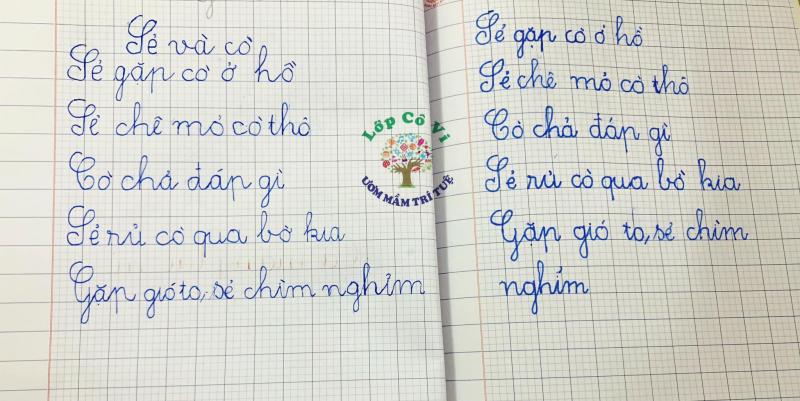 Sẻ và cò
Sẻ gặp cò ở hồ
Sẻ chê mỏ cò thô
Cò chả đáp gì
Sẻ rủ cò qua bờ kia
Gặp gió to, sẻ chìm nghỉm
Lớp Cô Vi
ƯƠM MẦM TRÍ TUỆ
Sẻ gặp cò ở hồ
Sẻ chê mỏ cò thô
Cò chả đáp gì
Sẻ rủ cò qua bờ kia
Gặp gió to, sẻ chìm
nghỉm